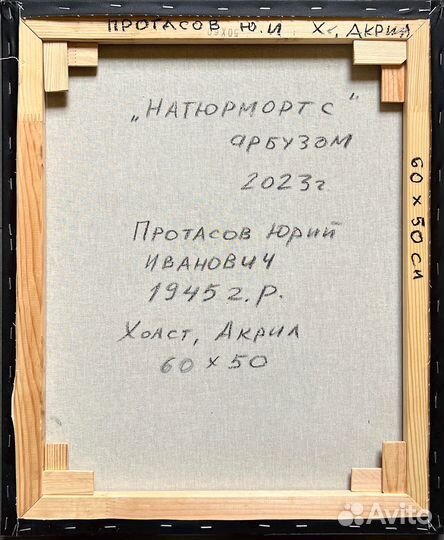 ПРОТАСОВ Ю.И Х., АКРИЛ
50X60
„НАТЮРМОРТ С"
АРБУЗОМ
2023г
ПРОТАСОВ ЮРИЙ
ИВАНОВИЧ
1945г.р.
ХОЛСТ, АКРИЛ
60 х 50
60 х 50 СМ
Avito